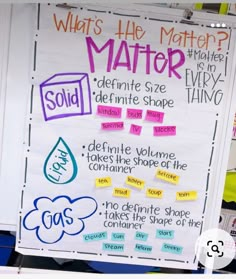 What's the Matter?
MATTER
#Matter
is in
EVERY-
THING
Solid
•definite size
•definite shape
Liquid
•definite volume
•takes the shape of the
container
tea
milk
soup
coffee
water
Gas
•no definite shape
•takes the shape of the
container
clouds
air
steam